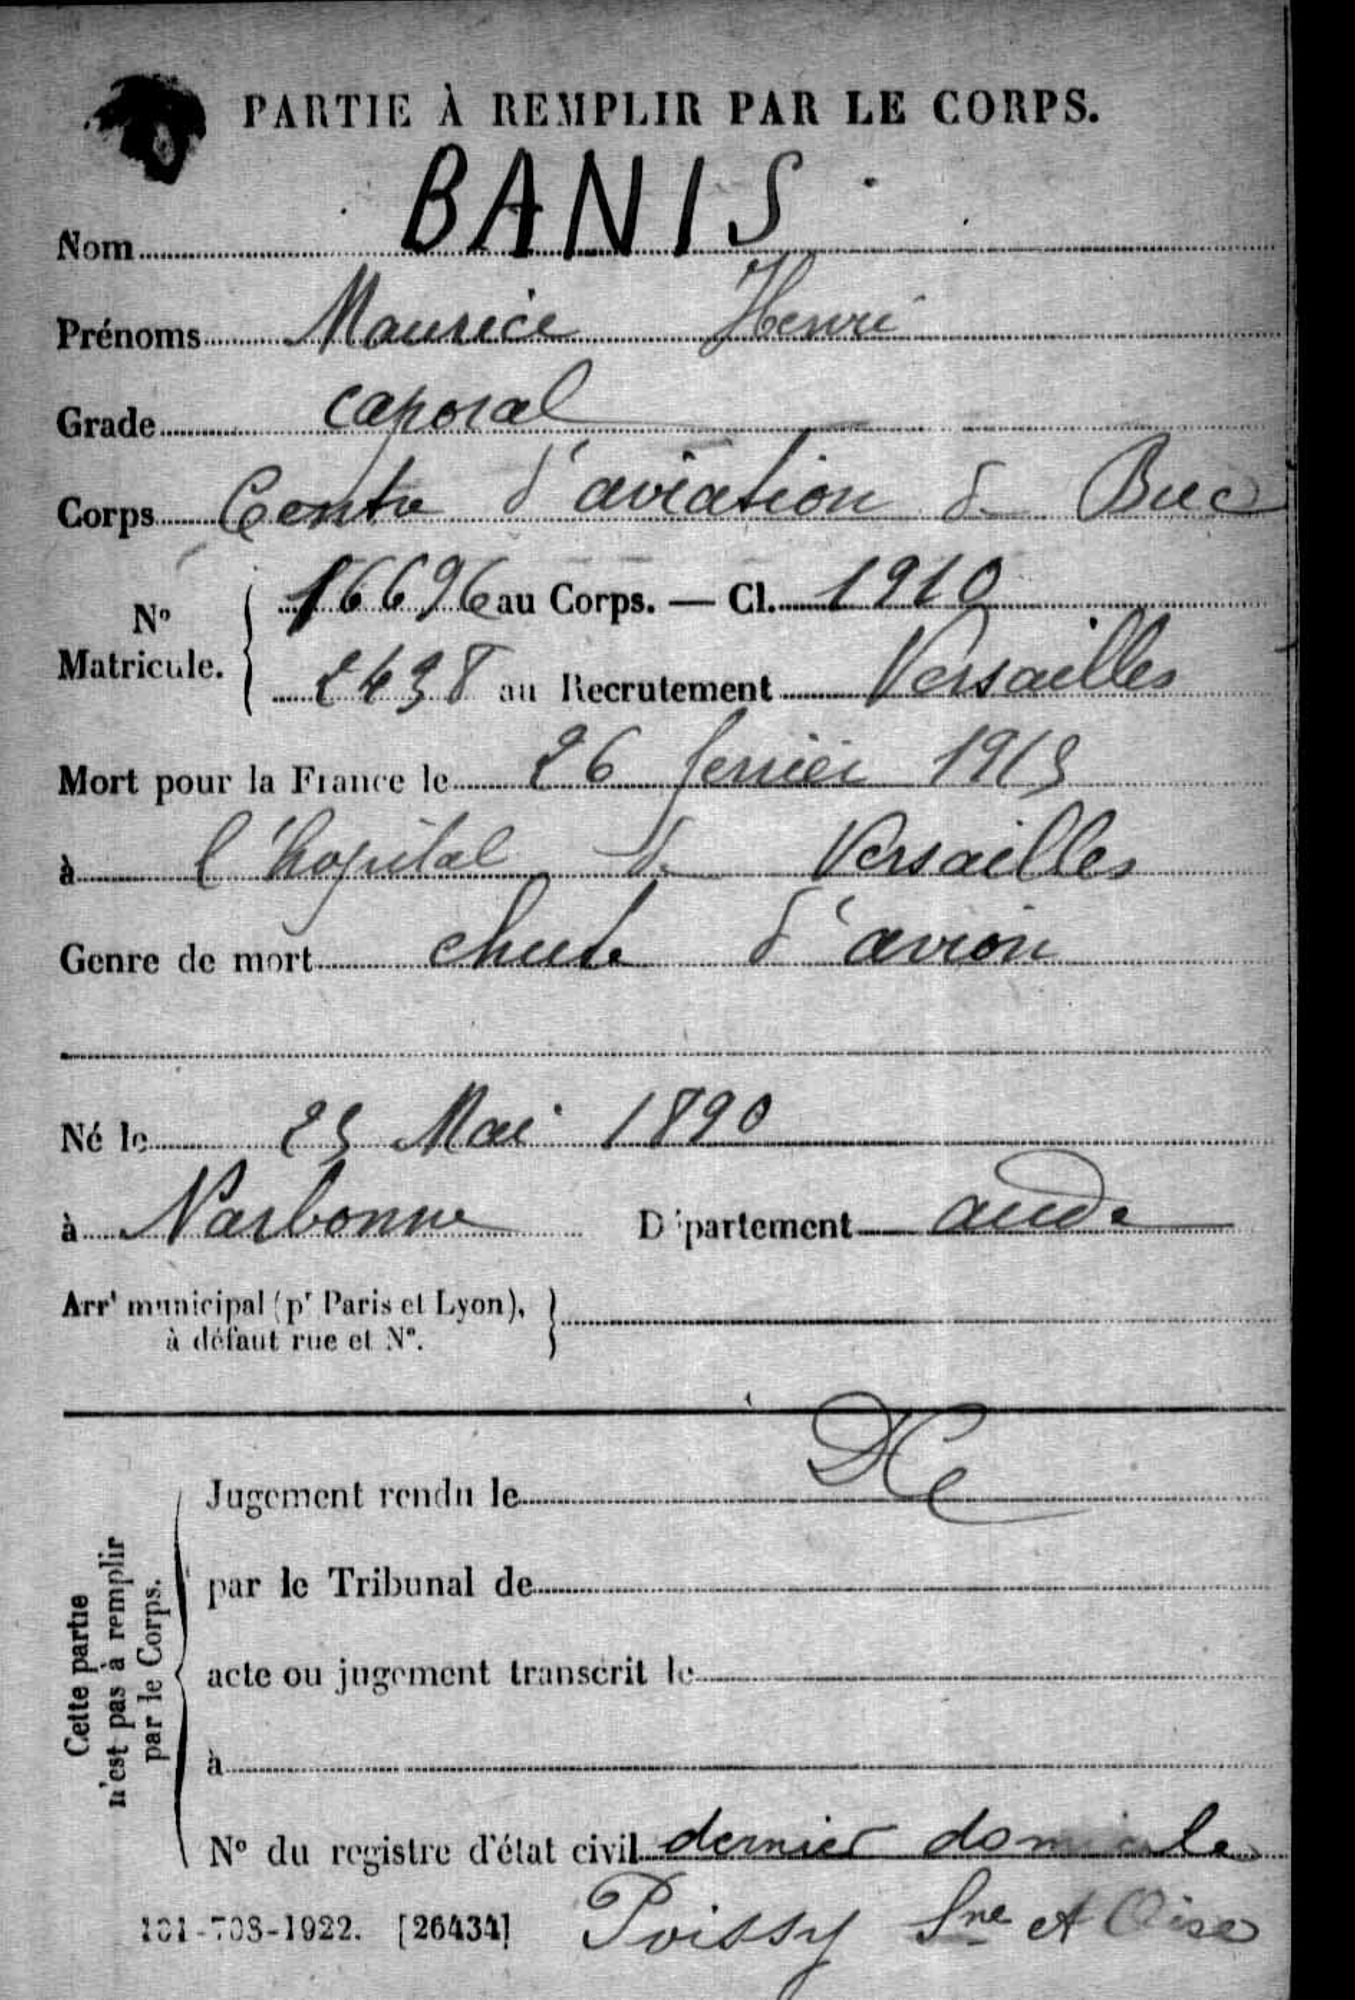 PARTIE À REMPLIR PAR LE CORPS.
Nom BANIS
Prénoms Maurice Henri
Grade caporal
Corps Centre d'aviation de Buc
No Matricule. 16696 au Corps. — Cl. 1910
2438 au Recrutement Versailles
Mort pour la France le 26 fevrier 1915
à l'hopital de Versailles
Genre de mort chute d'avion
Né le 25 Mai 1890
à Narbonne Département aude
Arrt municipal (pr Paris et Lyon),
à défaut rue et No.
Jugement rendu le
par le Tribunal de
acte ou jugement transcrit le
à
No du registre d'état civil dernier domicile
Poissy Sne et Oise
Cette partie
n'est pas à remplir
par le Corps.
101-708-1922. [26434]